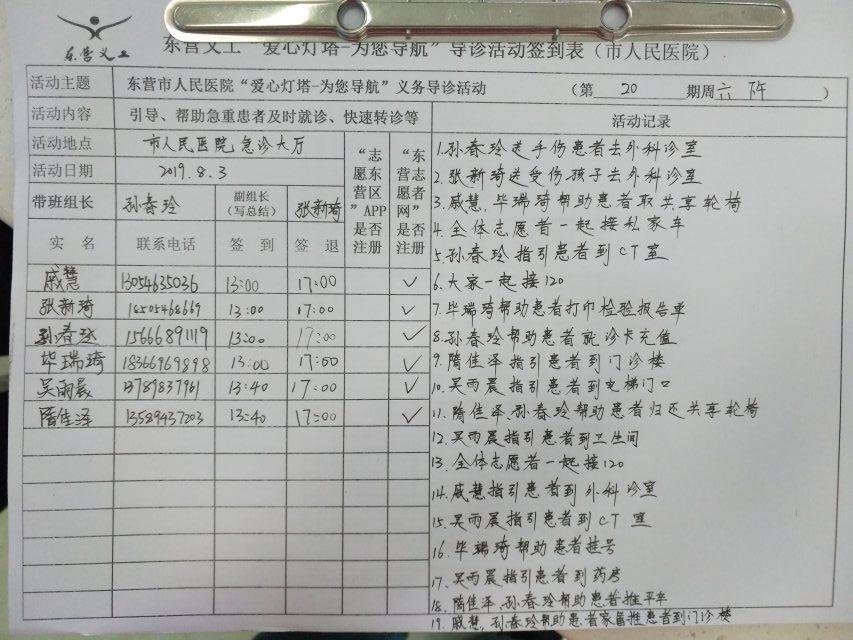 东营义工
东营义工“爱心灯塔-为您导航”导诊活动签到表（市人民医院）
活动主题 东营市人民医院“爱心灯塔-为您导航”义务导诊活动 （第 20 期周六下午）
活动内容 引导、帮助急重患者及时就诊、快速转诊等
活动地点 市人民医院急诊大厅
活动日期 2019.8.3
带班组长 孙春玲 副组长（写总结） 张新琦
“志愿东营区”APP是否注册
“东营志愿者网”是否注册
实名 联系电话 签到 签退
戚慧 13054635036 13:00 17:00 ✓
张新琦 18505468669 13:00 17:00 ✓
孙春玲 15666891119 13:00 17:00 ✓
毕瑞琦 18366969898 13:00 17:00 ✓
吴雨晨 13789837961 13:40 17:00 ✓
隋佳泽 13589437203 13:40 17:00 ✓
活动记录
1.孙春玲送手伤患者去外科诊室
2.张新琦送受伤孩子去外科诊室
3.戚慧,毕瑞琦帮助患者取共享轮椅
4.全体志愿者一起接私家车
5.孙春玲指引患者到CT室
6.大家一起接120
7.毕瑞琦帮助患者打印检验报告单
8.孙春玲帮助患者就诊卡充值
9.隋佳泽指引患者到门诊楼
10.吴雨晨指引患者到电梯门口
11.隋佳泽.孙春玲帮助患者归还共享轮椅
12.吴雨晨指引患者到卫生间
13.全体志愿者一起接120
14.戚慧指引患者到外科诊室
15.吴雨晨指引患者到CT室
16.毕瑞琦帮助患者挂号
17.吴雨晨指引患者到药房
18.隋佳泽.孙春玲帮助患者推平车
19.戚慧,孙春玲帮助患者家属推患者到门诊楼